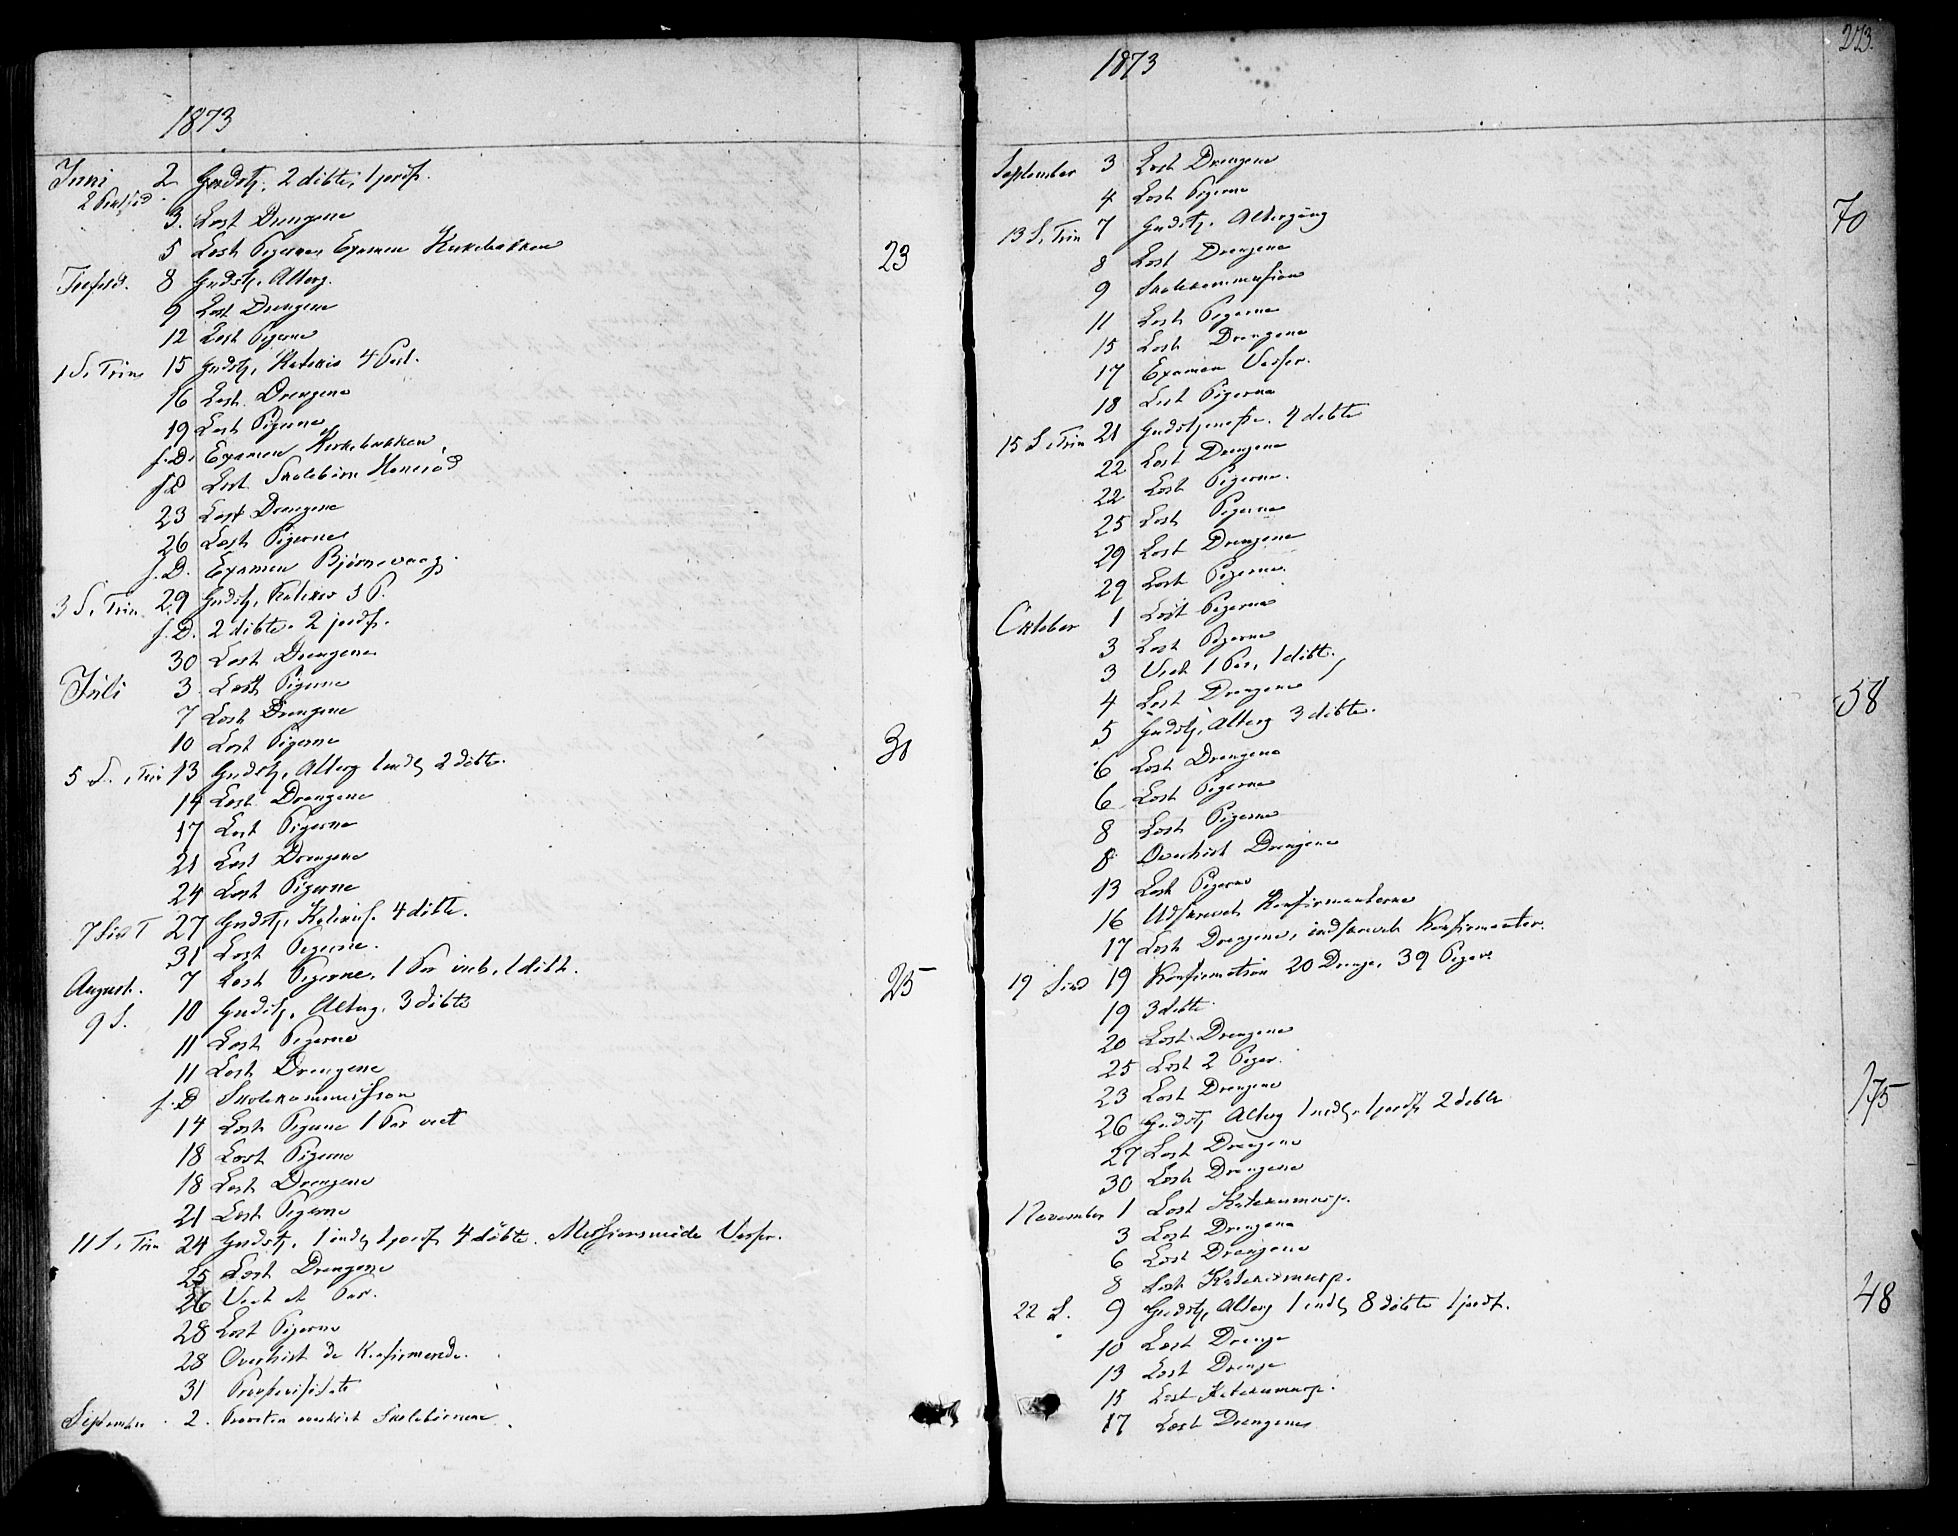 1873
Juni 2 Gudstj. 2 döbte, 1 jordf.
3. Læst Drengene
5 Læst Pigerne, Examen Kirkebakken
23
Trefold. 8 Gudstj. Alterg.
9 Læst Drengene
12 Læst Pigerne
1 S. Trin 15 Gudstj.
16 Læst Drengene
19 Læst Pigerne
s. D. Examen Kirkebakken
s. D Læst Skolebörn
23 Læst Drengene
26 Læst Pigerne
s. D. Examen Bjørnevaag
3 S. Trin. 29 Gudstj.
s. D. 2 döbte. 2 jordf.
30 Læst Drengene
Juli 3. Læst Pigerne
7 Læst Drengene
10 Læst Pigerne
5 S. Trin 13 Gudstj. Alterg 1 indl 2 döbte.
14 Læst Drengene
17 Læst Pigerne
21 Læst Drengene
24 Læst Pigerne
27 Gudstj. 4 döbte.
31 Læst Pigerne.
August. 7 Læst Pigerne, 1 Par viet, 1 döbt.
25
9 S. 10 Gudstj. Alterg. 3 döbte
11 Læst Pigerne
11 Læst Drengene
s. D Skolekommission
14 Læst Pigerne 1 Par viet
18 Læst Pigerne
18 Læst Drengene
21 Læst Pigerne
11 S. Trin 24 Gudstj. 1 indl 1 jordf 4 döbte. Missionsmöde
25 Læst Drengene
26 Viet et Par.
28 Læst Pigerne
28 Overhört de Konfirmerede.
31 Provstevisitats
September 2. Provsten overhört Skolebörnene
1873
273.
September 3 Læst Drengene
4 Læst Pigerne
70
13 S. Trin 7 Gudstj. Altergang
8 Læst Drengene
9 Skolekommission
11 Læst Pigerne
15 Læst Drengene
17 Examen
18 Læst Pigerne
15 S. Trin 21 Gudstjeneste. 4 döbte
22 Læst Drengene
22 Læst Pigerne.
25 Læst Pigerne
29 Læst Drengene
29 Læst Pigerne.
Oktober 1 Læst Pigerne
3 Læst Pigerne
3 Viet 1 Par, 1 döbt.
4 Læst Drengene
58
5 Gudstj. Alterg 3 döbte.
6 Læst Drengene
6 Læst Pigerne
8 Læst Pigerne
8 Overhört Drengene
13 Læst Pigerne
16 Udskrevet Konfirmanterne
17 Læst Drengene, indskrevet Konfirmanter.
19 Sönd 19 Konfirmation 20 Drenge, 39 Piger.
19 3 döbte
20 Læst Drengene
25 Læst 2 Piger.
23 Læst Drengene
175
26 Gudstj Alterg 1 indl. 1 jordf 2 döbte
27 Læst Drengene
30 Læst Drengene
November 1 Læst
3 Læst Drengene
6 Læst Drengene
8 Læst
48
22 S. 9 Gudstj, Alterg 1 indl 8 döbte 1 jordf.
10 Læst Drenge
13 Læst Drenge
15 Læst
17 Læst Drengene